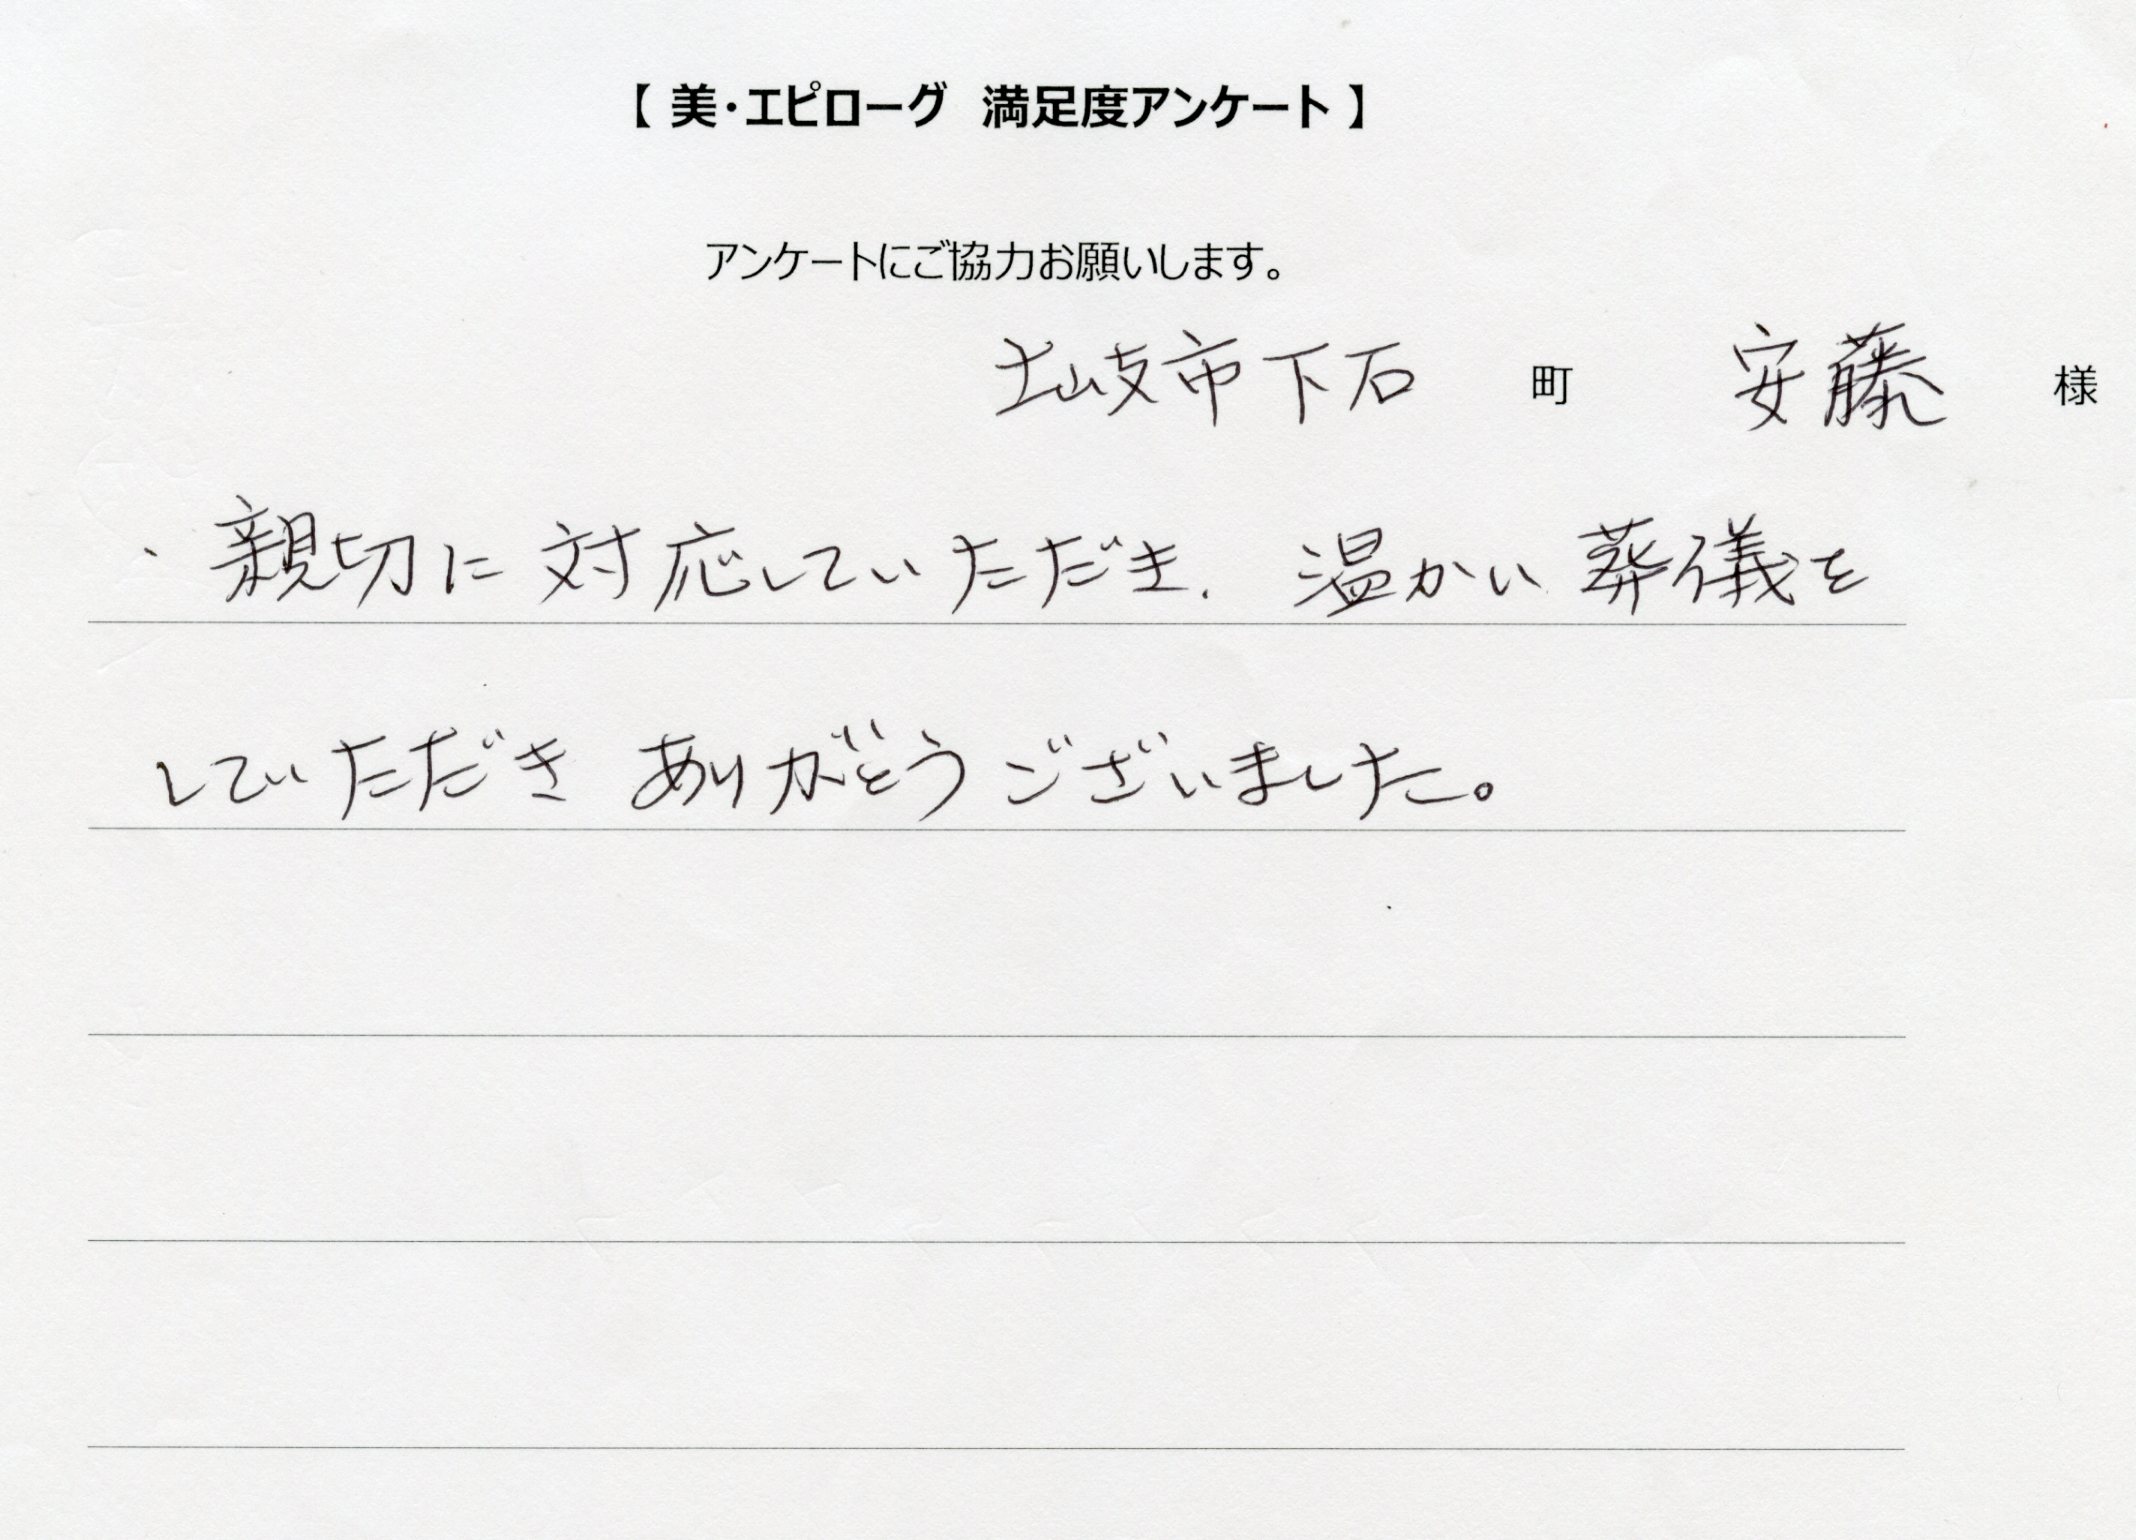 【 美・エピローグ　満足度アンケート 】
アンケートにご協力お願いします。
土岐市下石　町　安藤　様
・親切に対応していただき、温かい葬儀を
していただき ありがとうございました。